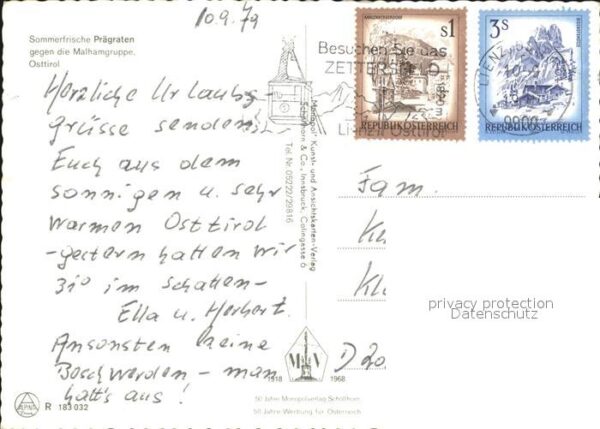 10.9.79
Sommerfrische Prägraten
gegen die Malhamgruppe,
Osttirol
Herzliche Urlaubs-
grüsse senden
Euch aus dem
sonnigen u. sehr
warmen Osttirol
-gestern hatten wir
31° im Schatten-
Ella u. Herbert.
Ansonsten keine
Beschwerden - man
hält's aus!
R 183 032
Monopol Kunst- und Ansichtskarten-Verlag
Schöllhorn & Co., Innsbruck, Colingasse 6
Tel. Nr. 05222/29816
M V
1918 1968
50 Jahre Monopolverlag Schöllhorn
50 Jahre Werbung für Österreich
Besuchen Sie das
ZETTERSFELD
1820 m
Lienz Osttirol
S1
REPUBLIK ÖSTERREICH
3S
REPUBLIK ÖSTERREICH
LIENZ
9900
Fam.
Ke
Kl
D 20
privacy protection
Datenschutz